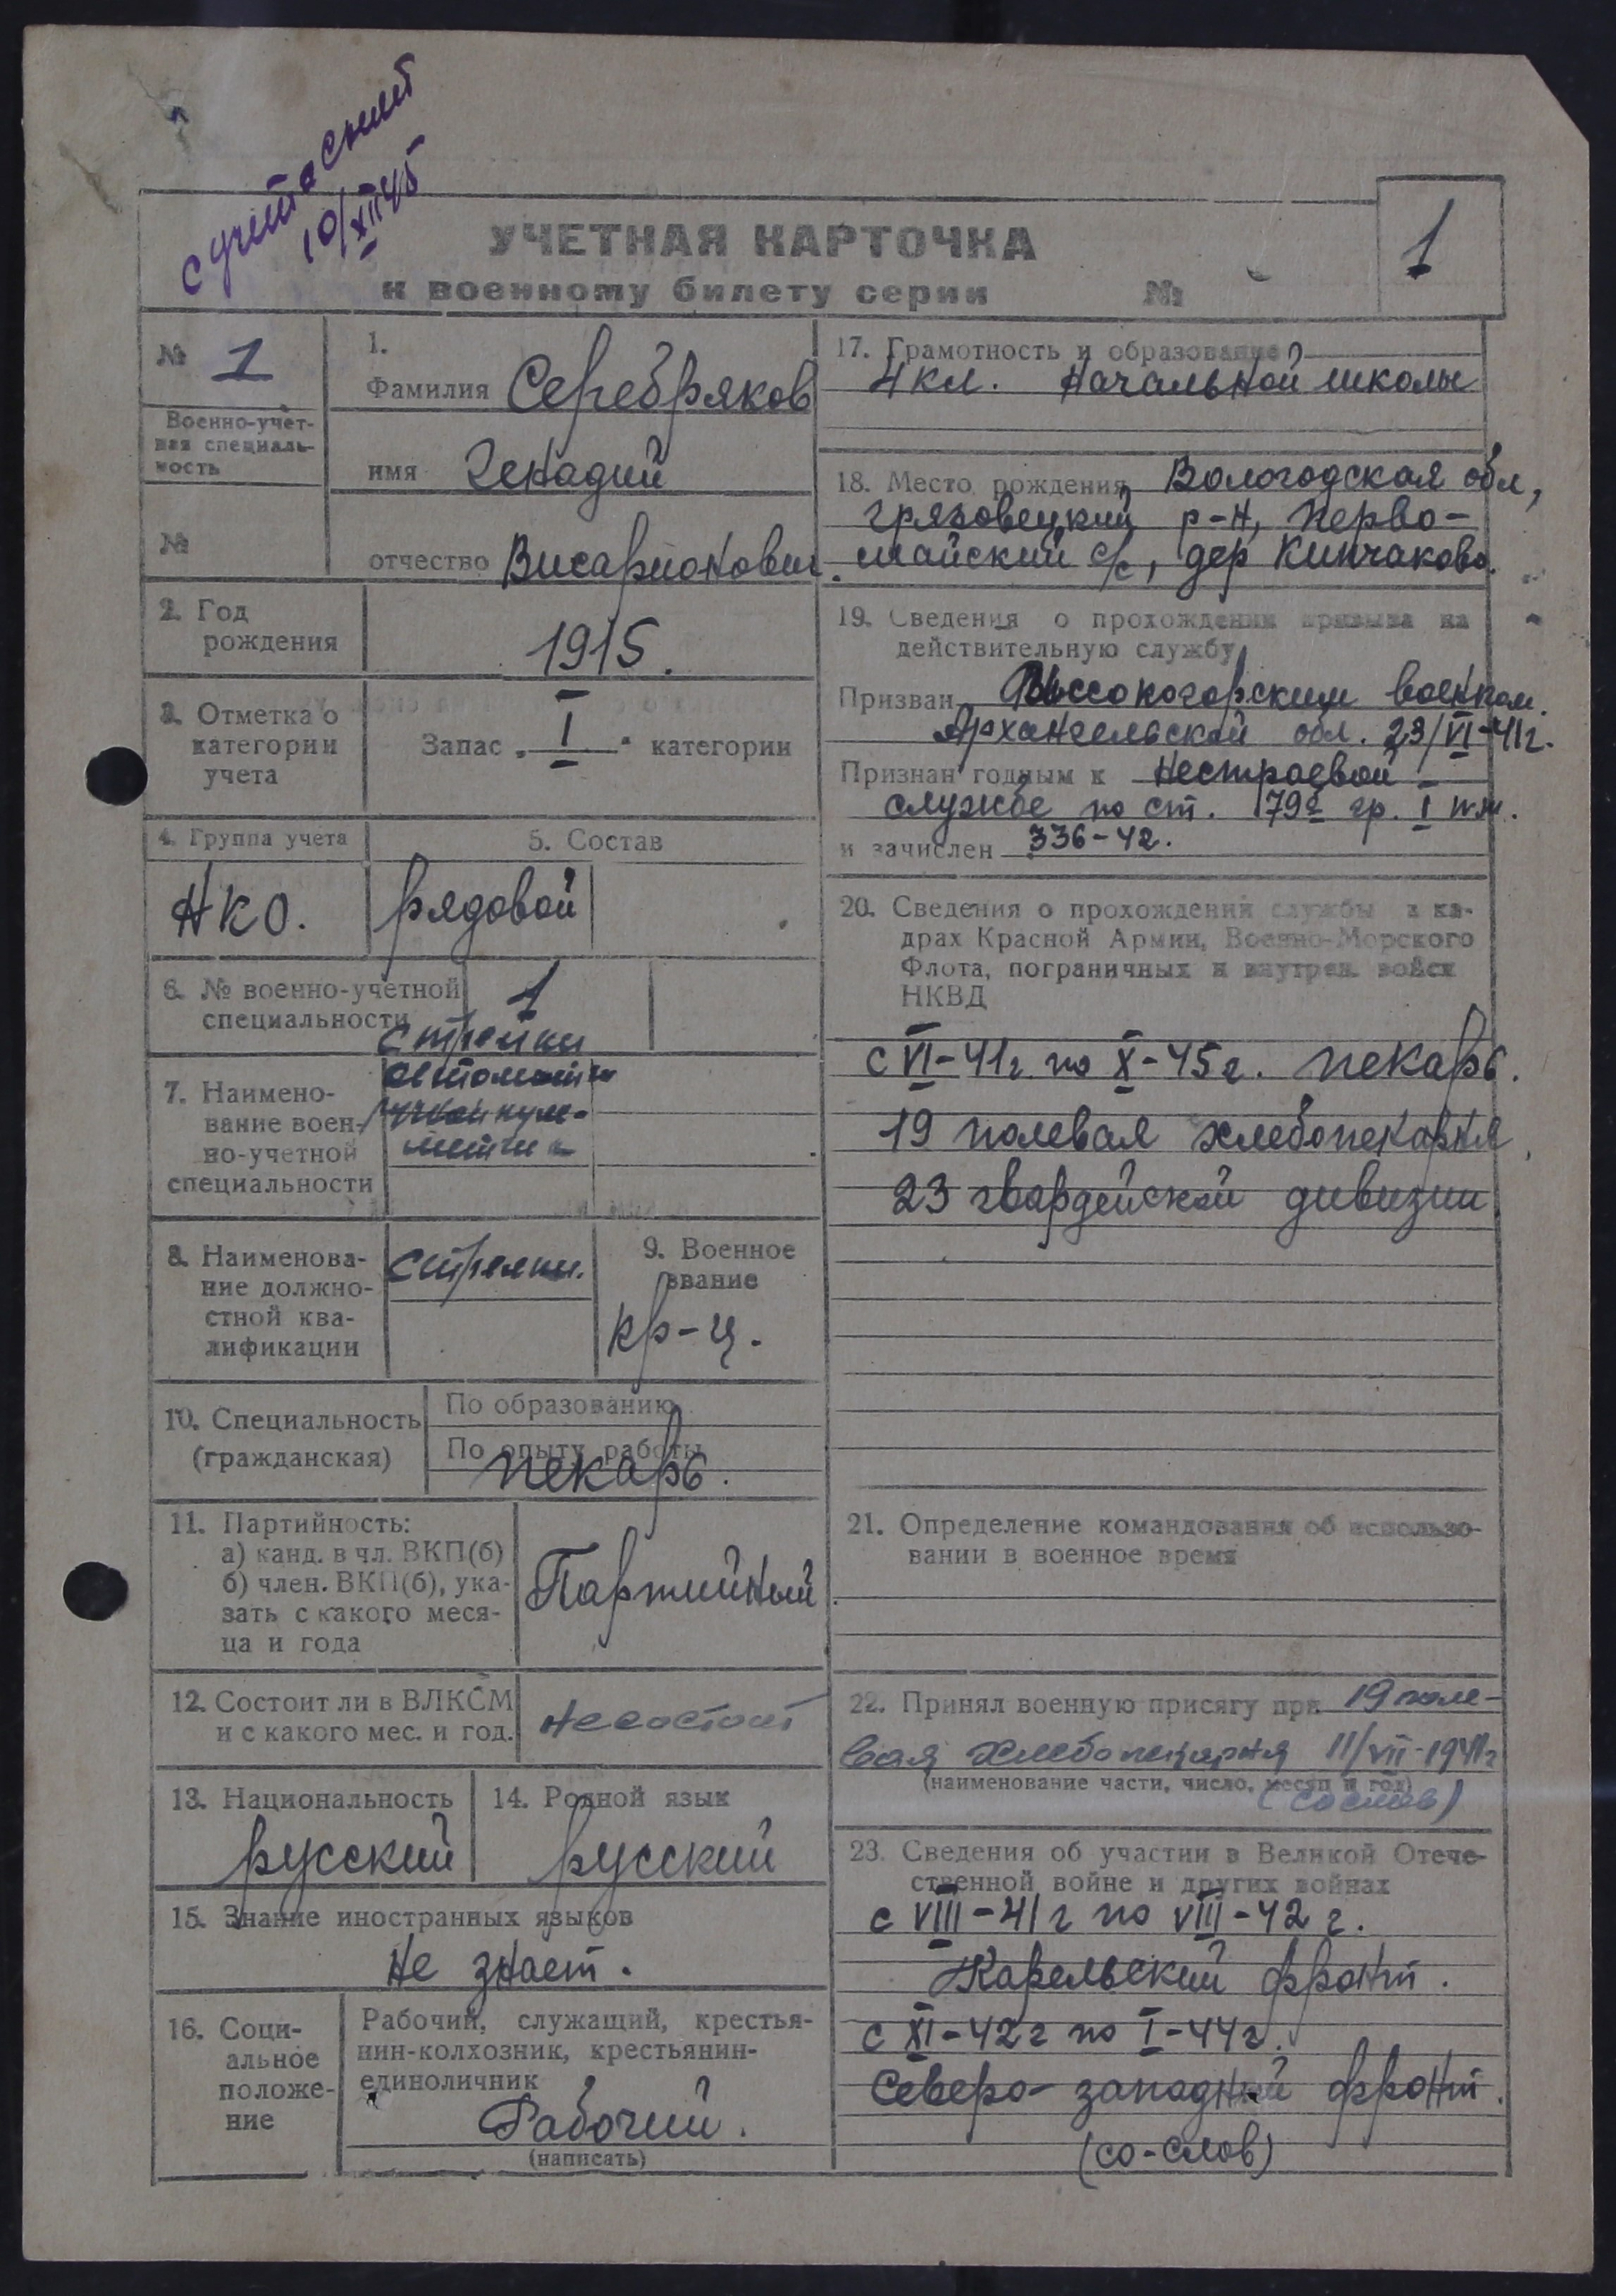 с учета снят
10/XII 45
УЧЕТНАЯ КАРТОЧКА
к военному билету серии №
1
№ 1
Военно-учет-
ная специаль-
ность
№
1.
Фамилия Серебряков
имя Генадий
отчество Висарионович.
2. Год
рождения
1915.
3. Отметка о
категории
учета
Запас „ I " категории
4. Группа учета
НКО.
5. Состав
рядовой
6. № военно-учетной
специальности
1
7. Наимено-
вание воен-
но-учетной
специальности
стрелки
автоматчики
8. Наименова-
ние должно-
стной ква-
лификации
стрелки.
9. Военное
звание
кр-ц.
10. Специальность
(гражданская)
По образованию
По опыту работы
пекарь.
11. Партийность:
а) канд. в чл. ВКП(б)
б) член. ВКП(б), ука-
зать с какого меся-
ца и года
Партийный
12. Состоит ли в ВЛКСМ
и с какого мес. и год.
не состоит
13. Национальность
русский
14. Родной язык
русский
15. Знание иностранных языков
не знает.
16. Соци-
альное
положе-
ние
Рабочий, служащий, крестья-
нин-колхозник, крестьянин-
единоличник
Рабочий.
(написать)
17. Грамотность и образование
4 кл. начальной школы
18. Место рождения Вологодская обл,
грязовецкий р-н, Перво-
майский с/с, дер Кипчаково.
19. Сведения о прохождении призыва на
действительную службу
Призван военком.
Архангельской обл. 23/VI-41г.
Признан годным к нестроевой
службе по ст. 79а гр. I
и зачислен 336-42.
20. Сведения о прохождении службы в ка-
драх Красной Армии, Военно-Морского
Флота, пограничных и внутрен. войск
НКВД
с VI-41г. по X-45г. пекарь.
19 полевая хлебопекарня,
23 гвардейской дивизии
21. Определение командования об использо-
вании в военное время
22. Принял военную присягу при 19 поле-
вая хлебопекарня 11/VII-1941г
(наименование части, число, месяц и год)
(со слов)
23. Сведения об участии в Великой Отече-
ственной войне и других войнах
с VIII-41г по VIII-42г.
Карельский фронт.
с XI-42г по I-44г.
Северо-западный фронт.
(со-слов)